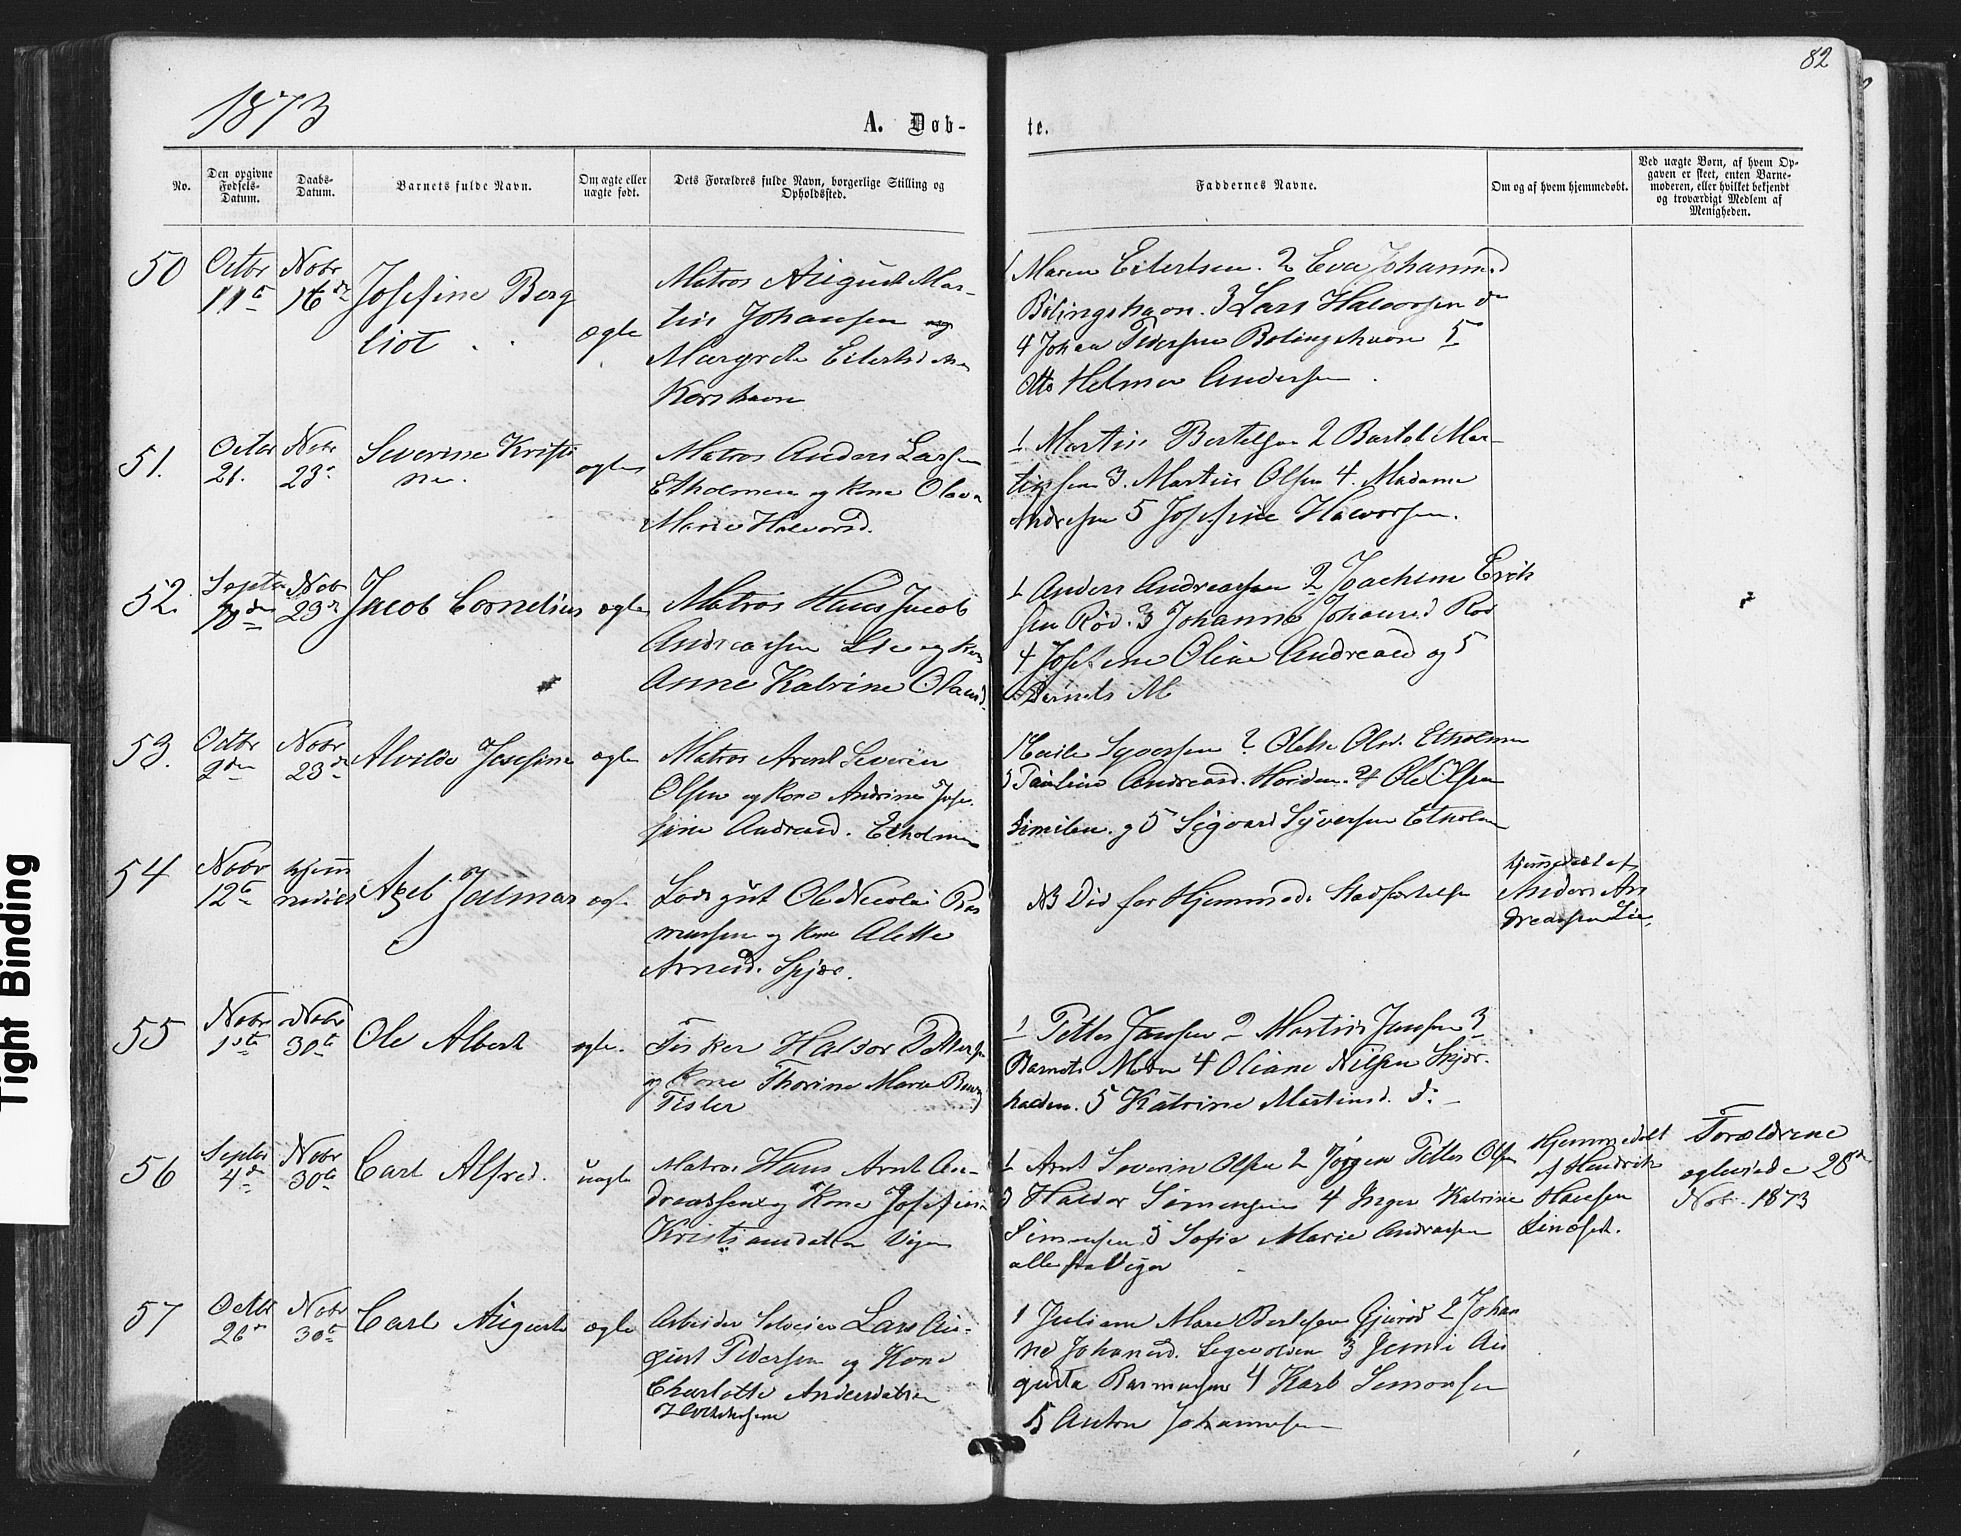 82
1873
A. Døb-
te.
No.
Den opgivne
Fødsels-
Datum.
Daabs-
Datum.
Barnets fulde Navn.
Om ægte eller
uægte født.
Dets Forældres fulde Navn, borgerlige Stilling og
Opholdssted.
Faddernes Navne.
Om og af hvem hjemmedøbt.
Ved uægte Børn, af hvem Op-
gaven er skeet, enten Barne-
moderen, eller hvilket bekjendt
og troværdigt Medlem af
Menigheden.
50
Octbr
11te
Novbr
16de
Josefine Berg
liot
ægte
Matros August Mar-
tin Johansen og
Margrethe Eilertsd
Korshavn
1 Maren Eilertsen. 2 Eva Johannesd
Bølingshavn. 3 Lars Halvorsen do
4 Johan Pedersen Bølingshavn 5
Otto Helmer Andersen
51.
Octbr
21.
Novbr
23de
Severine Kristi
ne.
ægte
Matros Anders Larsen
Etholmen og Kone Olava
Marie Halvorsd.
1 Martin Bertelsen 2 Bartol Mar-
tinsen 3. Martin Olsen 4. Madame
Andresen 5 Josefine Halvorsen.
52.
Septbr
10de
Novbr
23de
Jacob Cornelius
ægte
Matros Hans Jacob
Andreassen Lie og Kone
Anne Katrine Olausd.
1 Anders Andreassen 2 Joachim Erik
sen Rød. 3 Johanne Johannesd Rød
4 Josefine Oline Andreasd og 5
Barnets M
53.
Octbr
2den
Novbr
23de
Alvilde Josefine
ægte
Matros Arent Severin
Olsen og Kone Andrine Jose-
fine Andreasd. Etholmen
Syversen 2 Olette Olsd. Etholmen
3 Pauline Andreasd. 4 Ole Olsen
og 5 Sigvard Syversen Etholm
54
Novbr
12te
hjem
medøbt
Axel Jalmar
ægte
Lodsgut Ole Nicolai Ras
mussen og Kone Alette
Arnesd. Spjær.
NB Død før Hjemmed. Stadfæstelse
hjemmedøbt af
Anders An
dreassen Lie,
55
Novbr
1ste
Novbr
30te
Ole Albert
ægte.
Fisker Haldor Pettersen
og Kone Thorine Marie
Tisler
1 Petter Jansen 2 Martin Jansen 3
Barnets Moder 4 Oliane Nilsen Spjær-
halden. 5 Katrine Martinsd. do
56
Septbr
4de
Novbr
30te
Carl Alfred.
uægte
Matros Hans Arnt An-
dreassen og Kone Josefine
Kristiansdatter Viger
1 Arnt Severin Olsen 2 Jørgen Petter Olsen
3 Haldor Simensen 4 Inger Katrine
Simensen 5 Sofie Marie Andreassen
alle fra Viger
Hjemmedøbt
af Hendrik
Hansen
Forældrene
ægteviede 28de
Nov. 1873
57
Octbr
26de
Novbr
30te
Carl August
ægte
Arbeider Selveier Lars Au-
gust Pedersen og Kone
Charlotte Andersdatter
1 Juliane Marie Bertelsen Gjurød 2 Johan
ne Johansd. 3 Jenni Au
gusta Rasmussen 4 Karl Simonsen
5 Anton Johannesen
Tight Binding